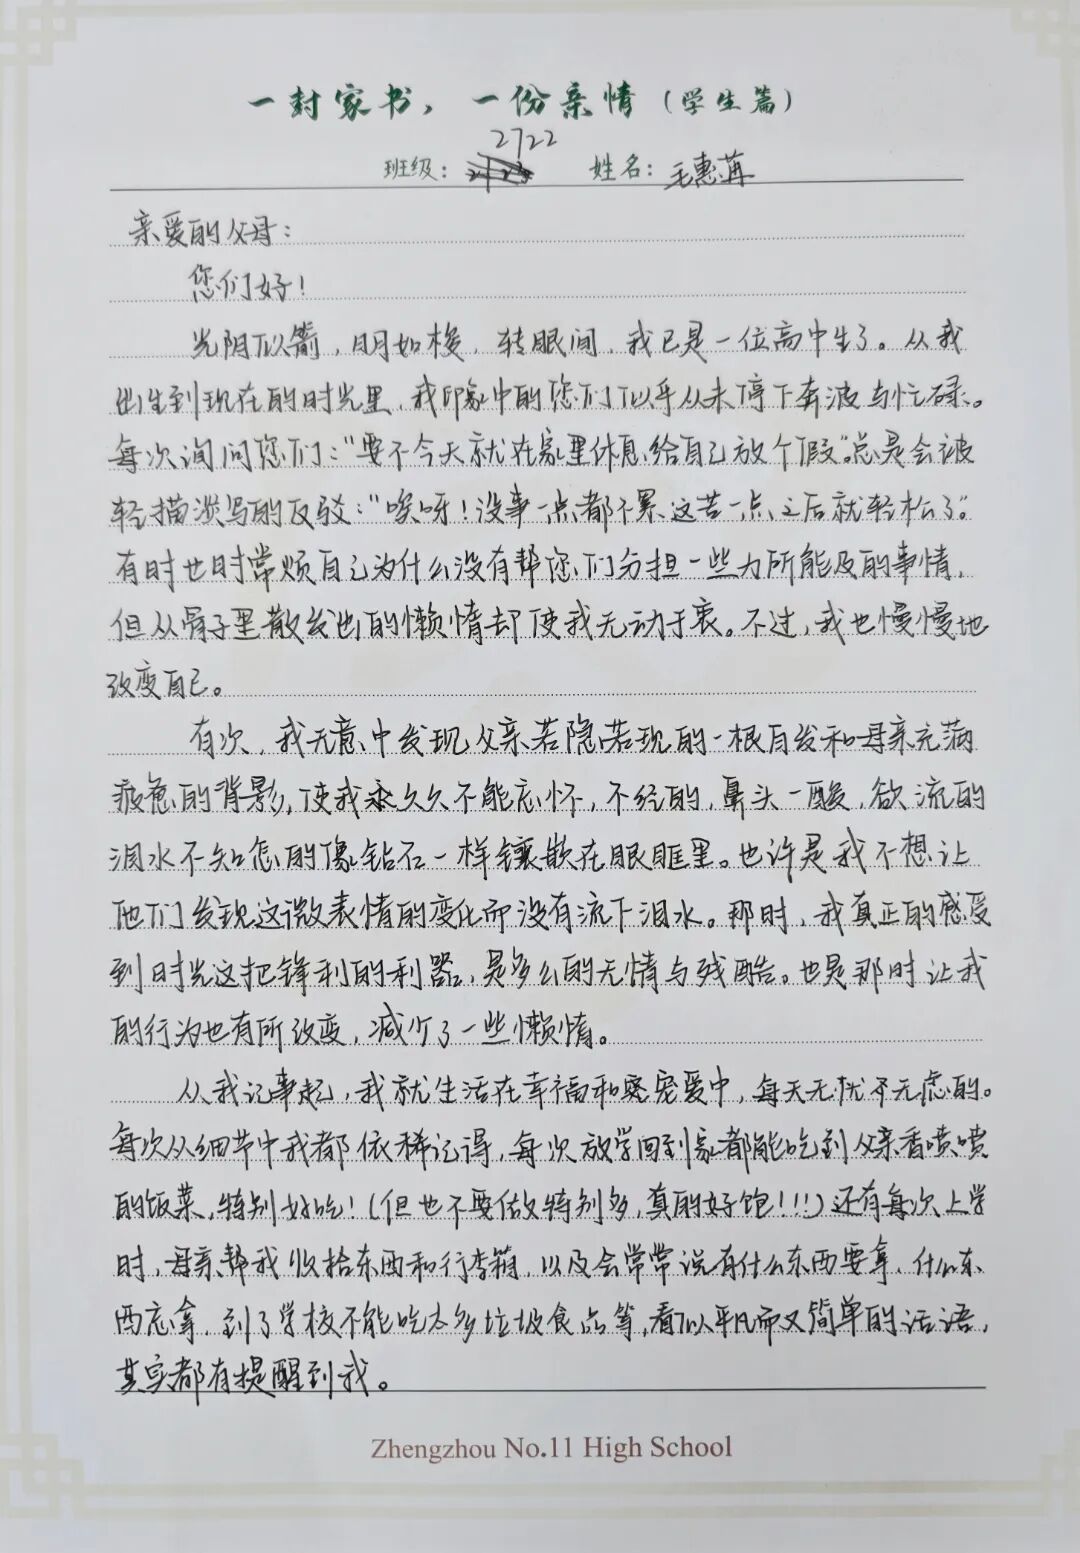 一封家书，一份亲情（学生篇）
2722
班级： 姓名：毛惠苒
亲爱的父母：
您们好！
光阴似箭，日月如梭，转眼间，我已是一位高中生了。从我
出生到现在的时光里，我印象中的您们似乎从未停下奔波与忙碌。
每次询问您们：“要不今天就在家里休息给自己放个假”总是会被
轻描淡写的反驳：“唉呀！没事一点都不累，这苦一点之后就轻松了”。
有时也时常烦自己为什么没有帮您们分担一些力所能及的事情，
但从骨子里散发出的懒惰却使我无动于衷。不过，我也慢慢地
改变自己。
有次，我无意中发现父亲若隐若现的一根白发和母亲充满
疲惫的背影，使我永久久不能忘怀，不经的，鼻头一酸，欲流的
泪水不知怎的像钻石一样镶嵌在眼眶里。也许是我不想让
他们发现这微表情的变化而没有流下泪水。那时，我真正的感受
到时光这把锋利的利器，是多么的无情与残酷。也是那时让我
的行为也有所改变，减少了一些懒惰。
从我记事起，我就生活在幸福和宠爱中，每天无忧无虑的。
每次从细节中我都依稀记得，每次放学回到家都能吃到父亲香喷喷
的饭菜，特别好吃！（但也不要做特别多，真的好饱！！！）还有每次上学
时，母亲帮我收拾东西和行李箱，以及会常常说有什么东西要拿，什么东
西忘拿，到了学校不能吃太多垃圾食品等，看似平凡而又简单的话语，
其实都有提醒到我。
Zhengzhou No.11 High School